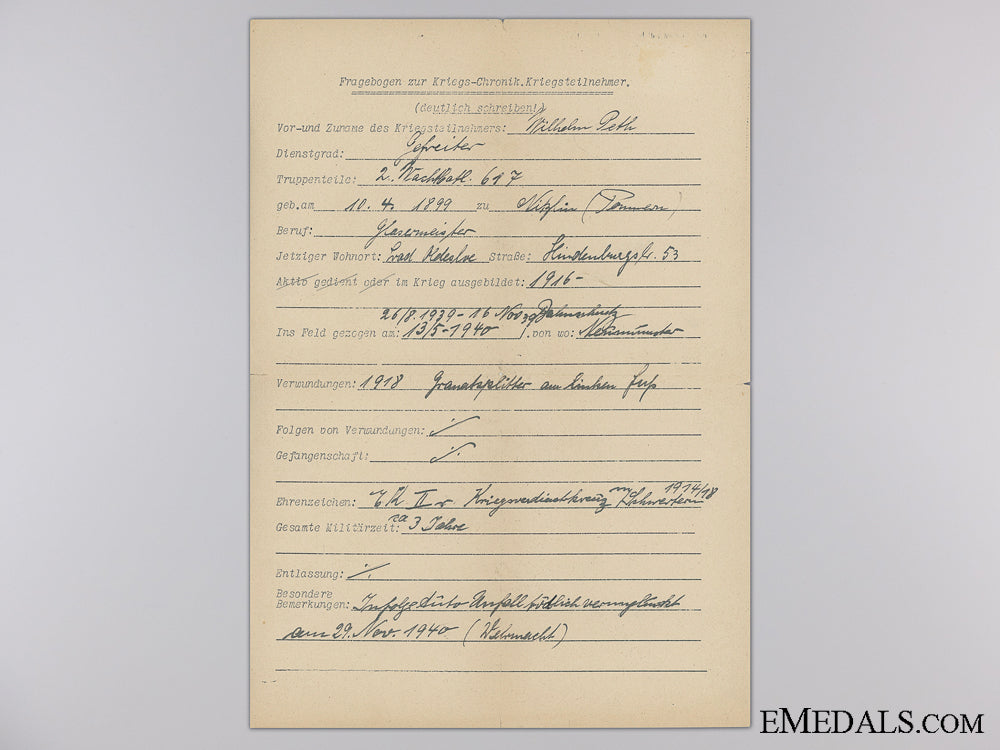 Fragebogen zur Kriegs-Chronik.Kriegsteilnehmer.
(deutlich schreiben!)
Vor-und Zuname des Kriegsteilnehmers: Wilhelm Peth
Dienstgrad: Gefreiter
Truppenteile: 2. Wachbatl. 617
geb.am 10. 4. 1899 zu (Pommern)
Beruf: Glasermeister
Jetziger Wohnort: Bad Oldesloe Straße: Hindenburgstr. 53
Aktiv gedient oder im Krieg ausgebildet: 1916-
26/8. 1939 - 16 Nov 39 Bahnschutz
Ins Feld gezogen am: 13/5-1940 ).von wo: Neumünster
Verwundungen: 1918 Granatsplitter am linken Fuß
Folgen von Verwundungen: ·/.
Gefangenschaft: ·/.
1914/18
Ehrenzeichen: EK II Kriegsverdienstkreuz m Schwertern
Gesamte Militärzeit: ca 3 Jahre
Entlassung: ·/.
Besondere
Bemerkungen: Infolge Auto Unfall tödlich verunglückt
am 29. Nov. 1940 (Wehrmacht)
EMEDALS.COM